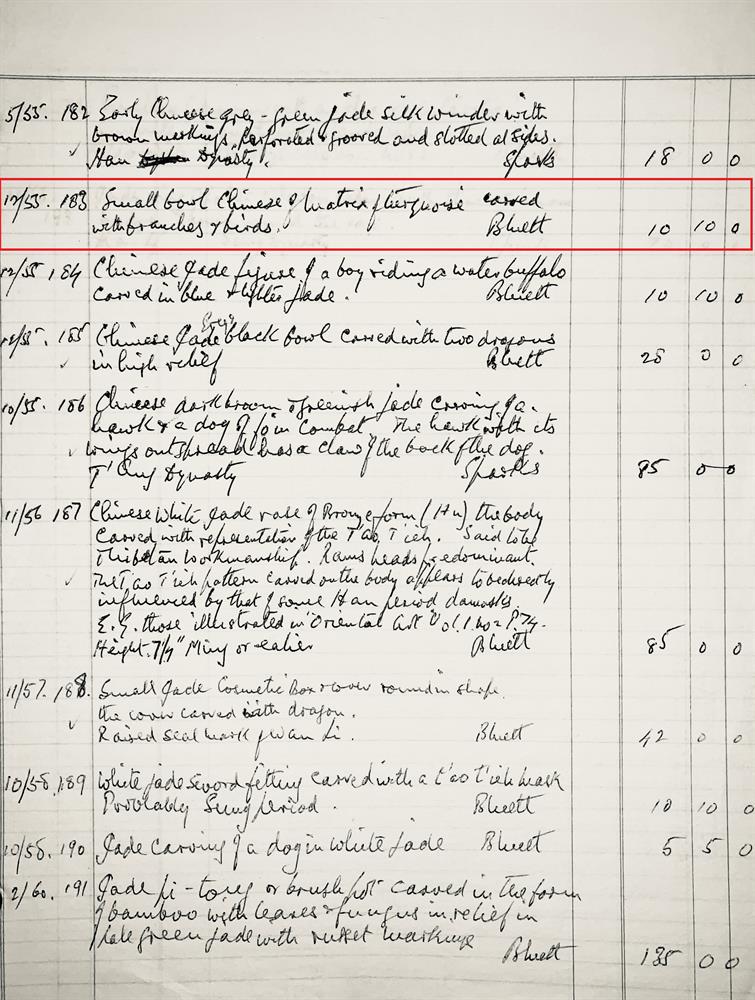 5/55. 182 Early Chinese grey-green jade silk winder with
brown markings, perforated & grooved and slotted at sides.
Han Dynasty. Sparks 18 0 0
12/55. 183 Small bowl Chinese of matrix of turquoise carved
with branches & birds. Bluett 10 10 0
12/55 184 Chinese Jade figure of a boy riding a water buffalo
carved in blue & white jade. Bluett 10 10 0
12/55. 185 Chinese Jade Grey black bowl carved with two dragons
in high relief Bluett 28 0 0
10/55. 186 Chinese dark brown & greenish jade carving of a
hawk & a dog in combat The hawk with its
wings outspread has a claw of the back of the dog.
T'Ang Dynasty Sparks 85 0 0
11/56 187 Chinese White Jade vase of Bronze form (Hu) the body
carved with representation of the T'ao T'ieh. Said to be
Thibetan workmanship. Rams heads predominant.
The T'ao T'ieh pattern carved on the body appears to be directly
influenced by that of some Han period damasks.
E.G. those illustrated in "Oriental Art" Vol. 1. no 2 P. 74.
Height. 7¼" Ming or ealier Bluett 85 0 0
11/57. 188. Small Jade Cosmetic Box & cover round in shape.
the cover carved with dragon.
Raised seal mark of Wan Li. Bluett 42 0 0
10/58. 189 White jade sword fitting carved with a t'ao t'ieh mask
Probably Sung period. Bluett 10 10 0
10/58. 190 Jade carving of a dog in white jade Bluett 5 5 0
2/60. 191 Jade pi-tong or brush pot carved in the form
of bamboo with leaves & fungus in relief in
pale green jade with russet markings
Bluett 135 0 0